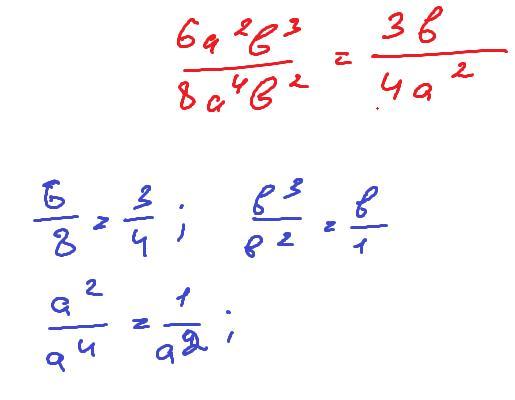 6a²b³/8a⁴b² = 3b/4a²
6/8 = 3/4 ; b³/b² = b/1
a²/a⁴ = 1/a² ;